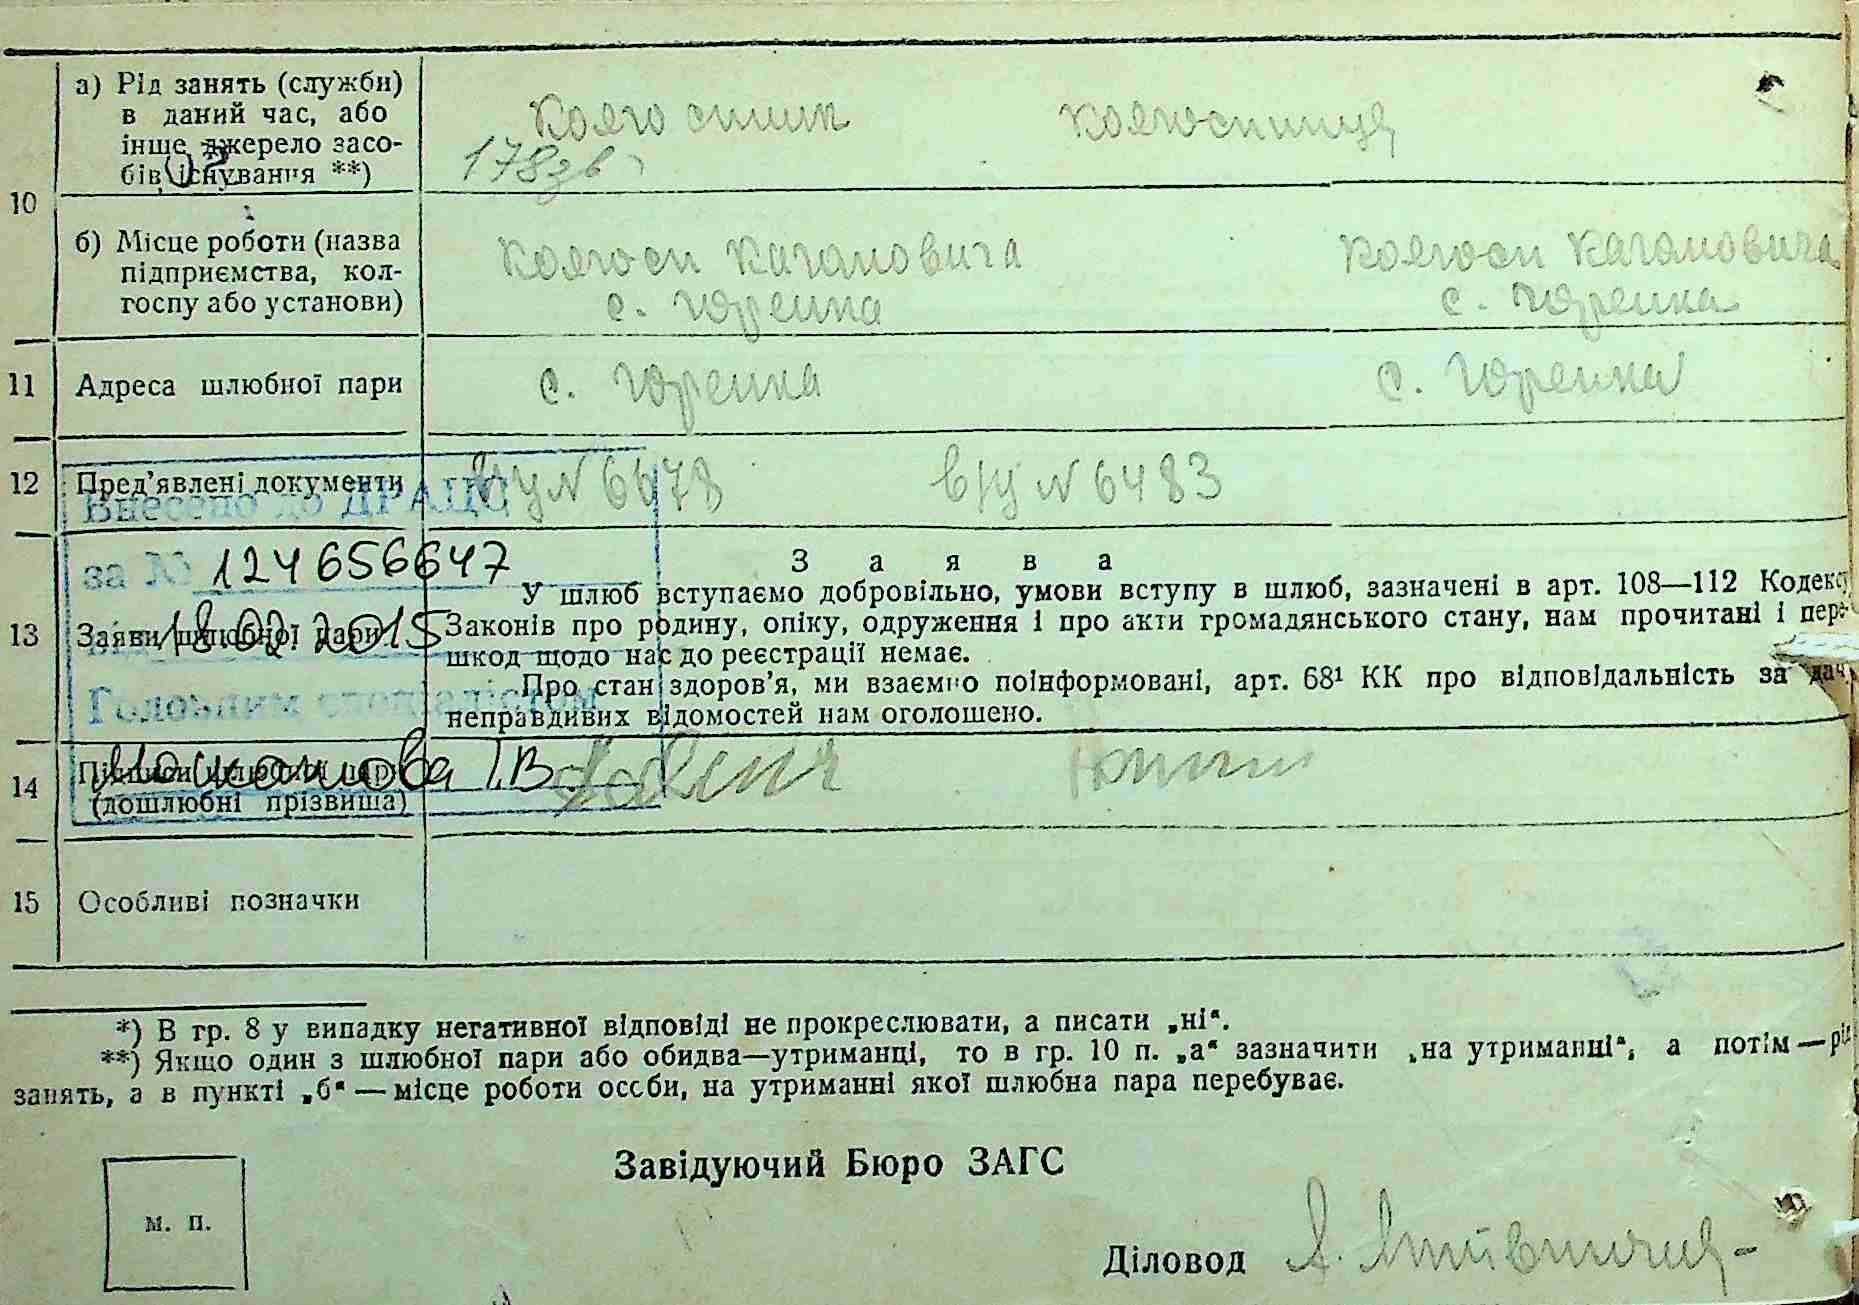 10
а) Рід занять (служби)
в даний час, або
інше джерело засо-
бів існування **)
колгоспник
колгоспниця
178зв
б) Місце роботи (назва
підприємства, кол-
госпу або установи)
колгосп Кагановича
с. Горенка
колгосп Кагановича
с. Горенка
11
Адреса шлюбної пари
с. Горенка
с. Горенка
12
Пред’явлені документи
№ 6678
в/у № 6483
Внесено до ДРАЦС
за № 124656647
18 02 2015
Головним спеціалістом
І.В.
13
Заяви шлюбної пари
Заява
У шлюб вступаємо добровільно, умови вступу в шлюб, зазначені в арт. 108—112 Кодексу
Законів про родину, опіку, одруження і про акти громадянського стану, нам прочитані і пере-
шкод щодо нас до реєстрації немає.
Про стан здоров’я, ми взаємно поінформовані, арт. 68¹ КК про відповідальність за дач
неправдивих відомостей нам оголошено.
14
Підписи шлюбної пари
(дошлюбні прізвища)
15
Особливі позначки
*) В гр. 8 у випадку негативної відповіді не прокреслювати, а писати „ні“.
**) Якщо один з шлюбної пари або обидва—утриманці, то в гр. 10 п. „а“ зазначити „на утриманні“, а потім — рід
занять, а в пункті „б“ — місце роботи особи, на утриманні якої шлюбна пара перебуває.
Завідуючий Бюро ЗАГС
м. п.
Діловод